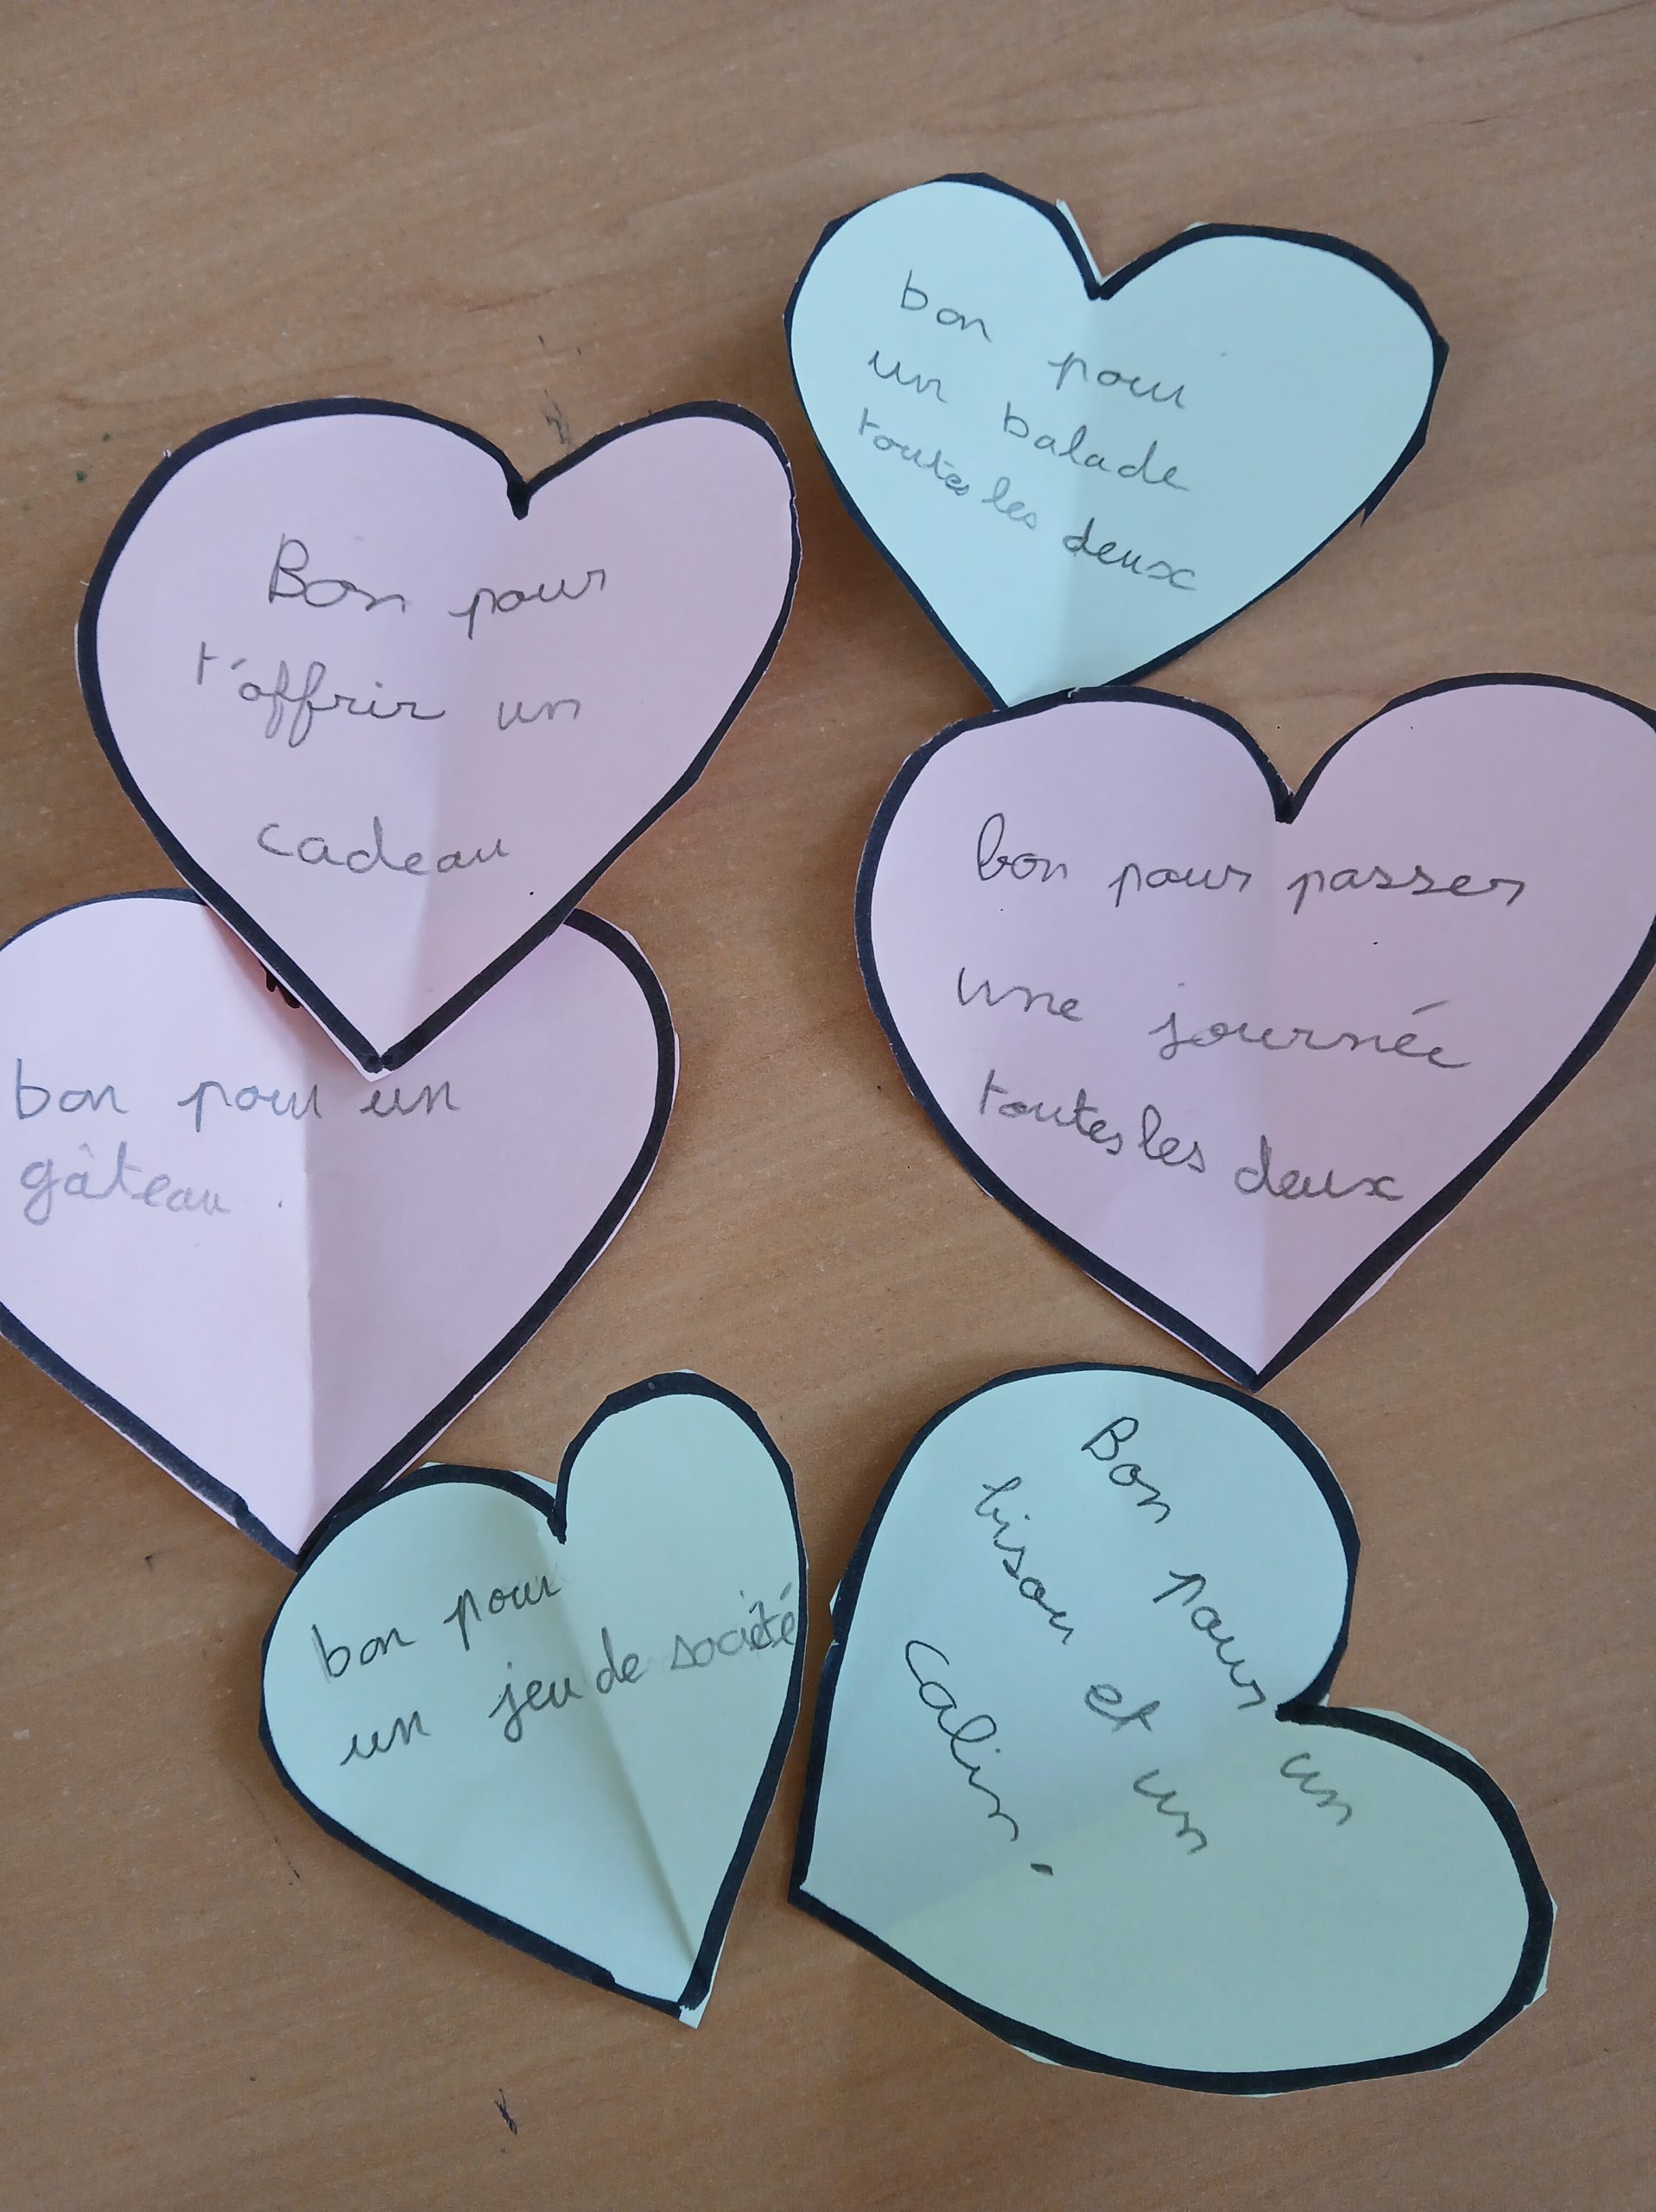 bon pour
un balade
toutes les deux
Bon pour
t'offrir un
cadeau
bon pour passer
une journée
toutes les deux
bon pour un
gâteau.
bon pour
un jeu de société
Bon pour un
bisou et un
calin.